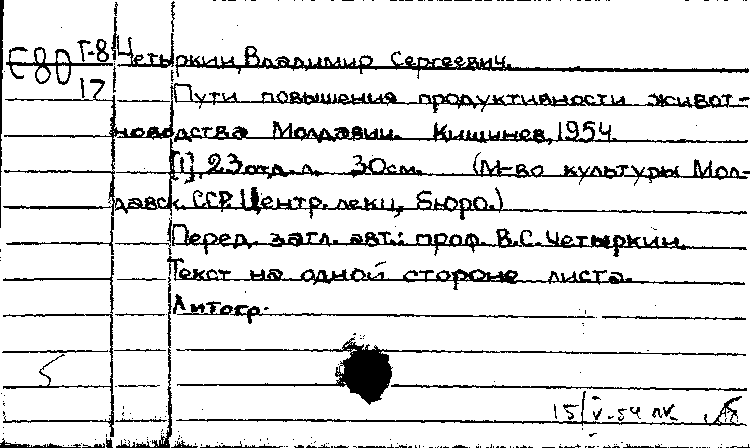 Е80 Г-8 Четыркин, Владимир Сергеевич.
17 Пути повышения продуктивности живот-
новодства Молдавии. Кишинев, 1954.
[1], 23 отд. л. 30 см. (М-во культуры Мол-
давск. ССР. Центр. лекц. бюро.)
Перед. загл. авт.: проф. В.С. Четыркин.
Текст на одной стороне листа.
Литогр.
15/V-54